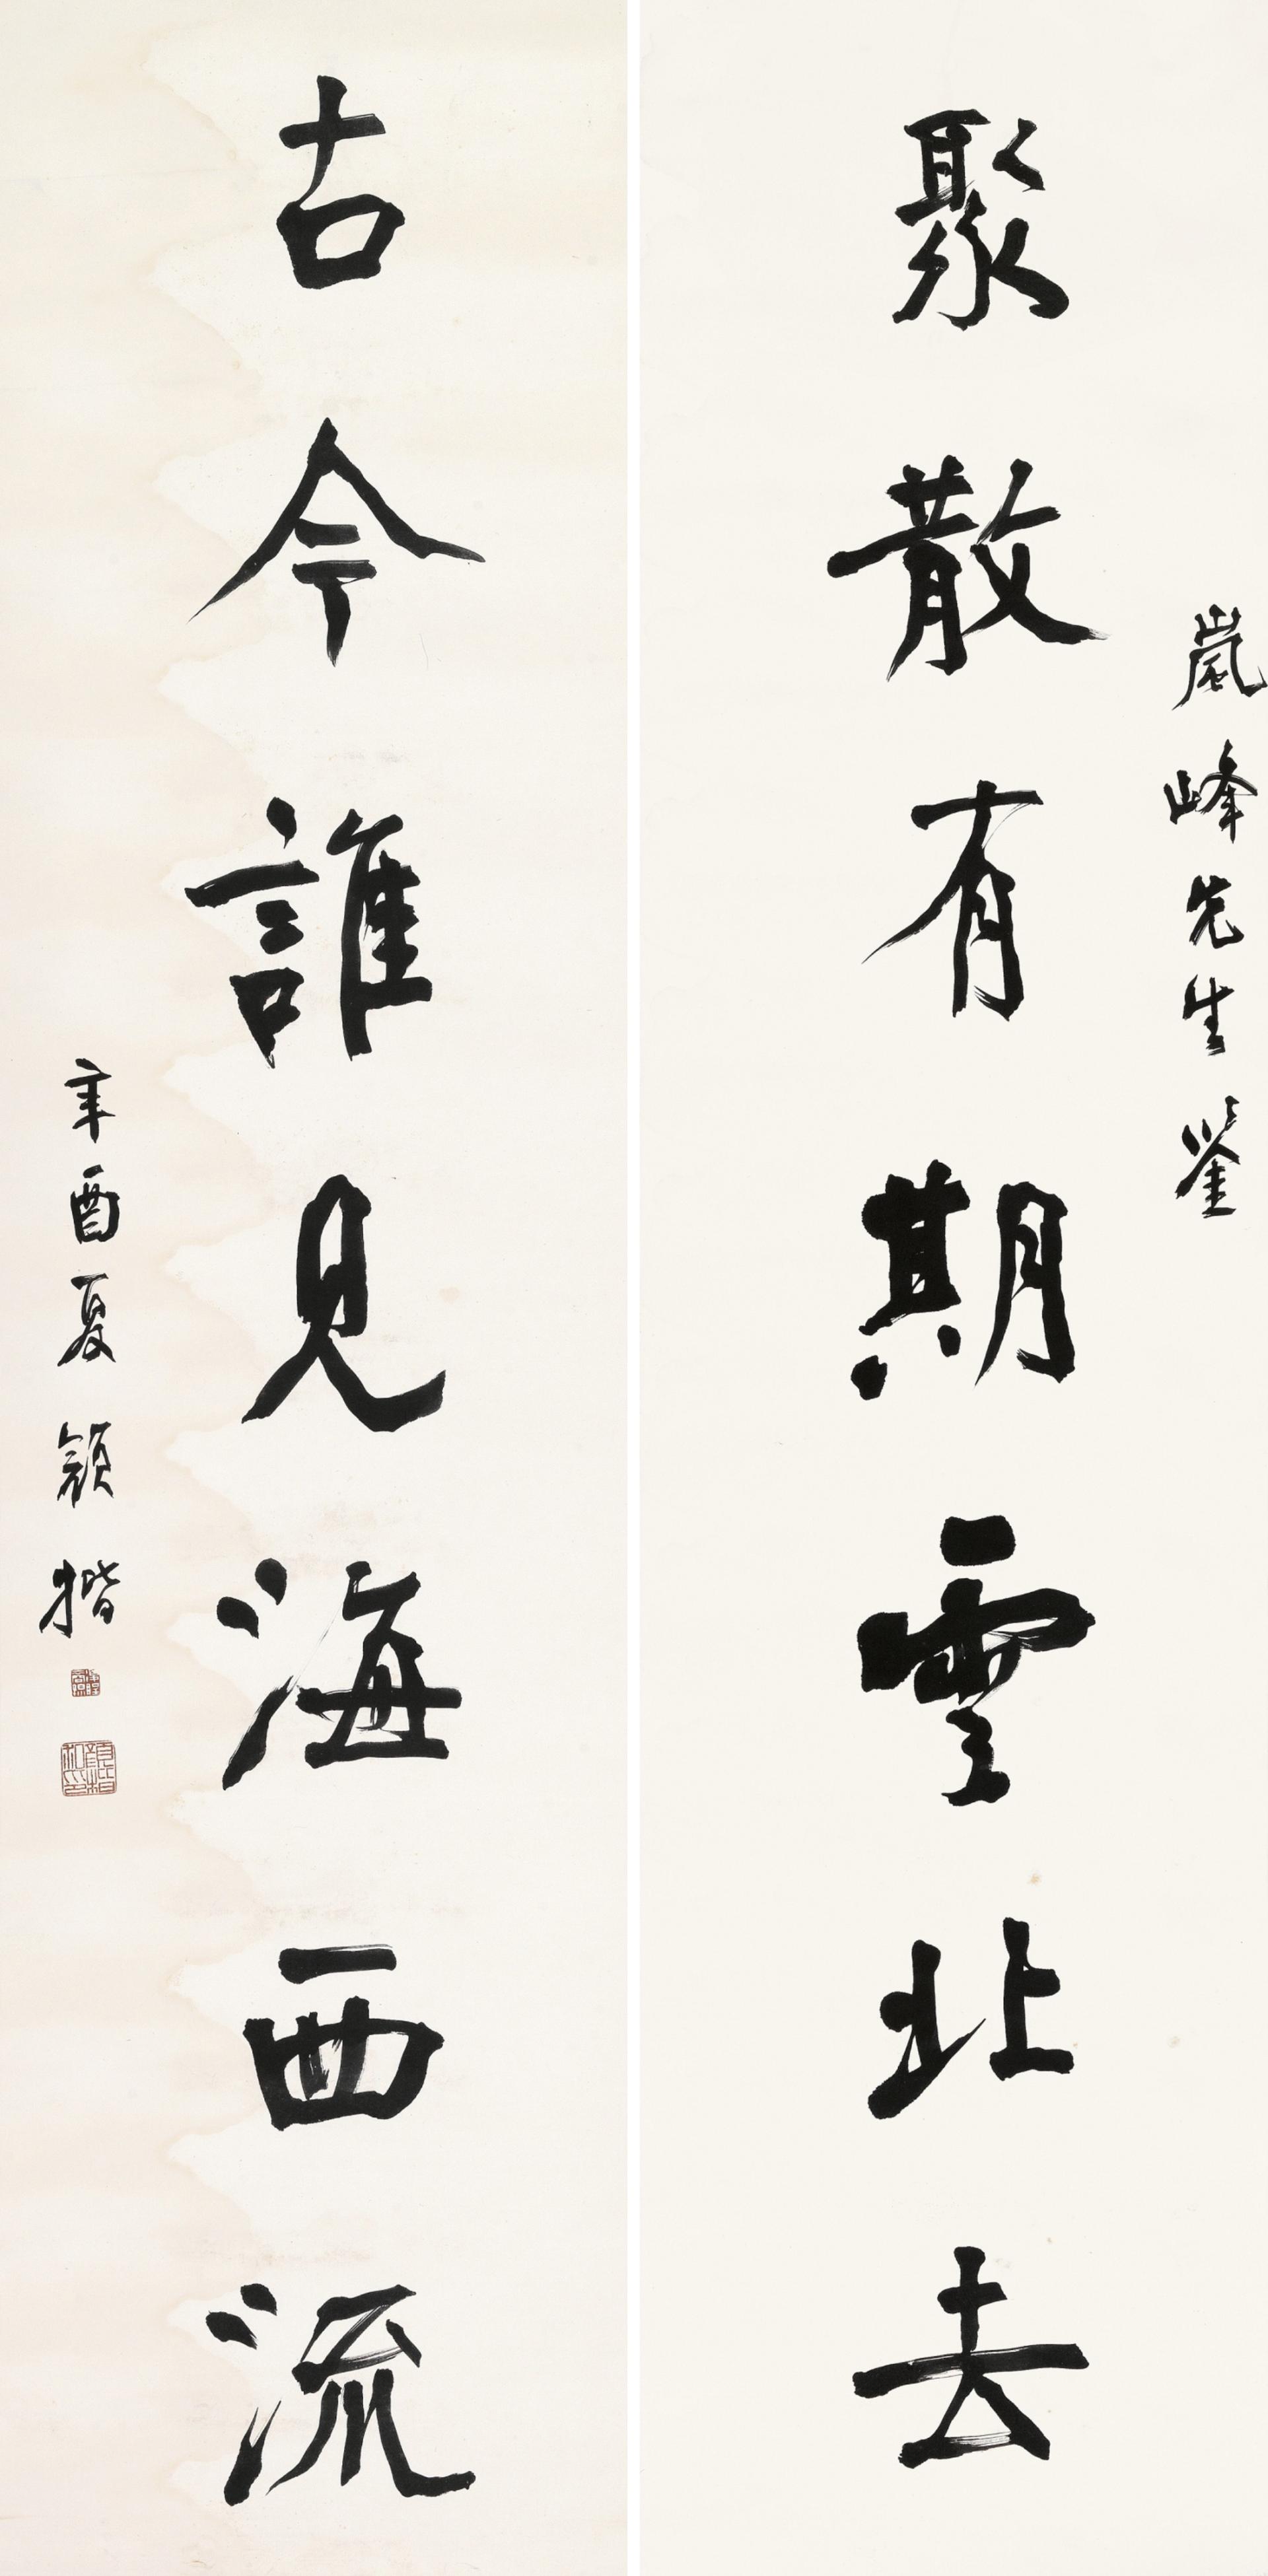 嵐峰先生鉴
聚散有期雲北去
古今誰見海西流
辛酉夏 顏楷